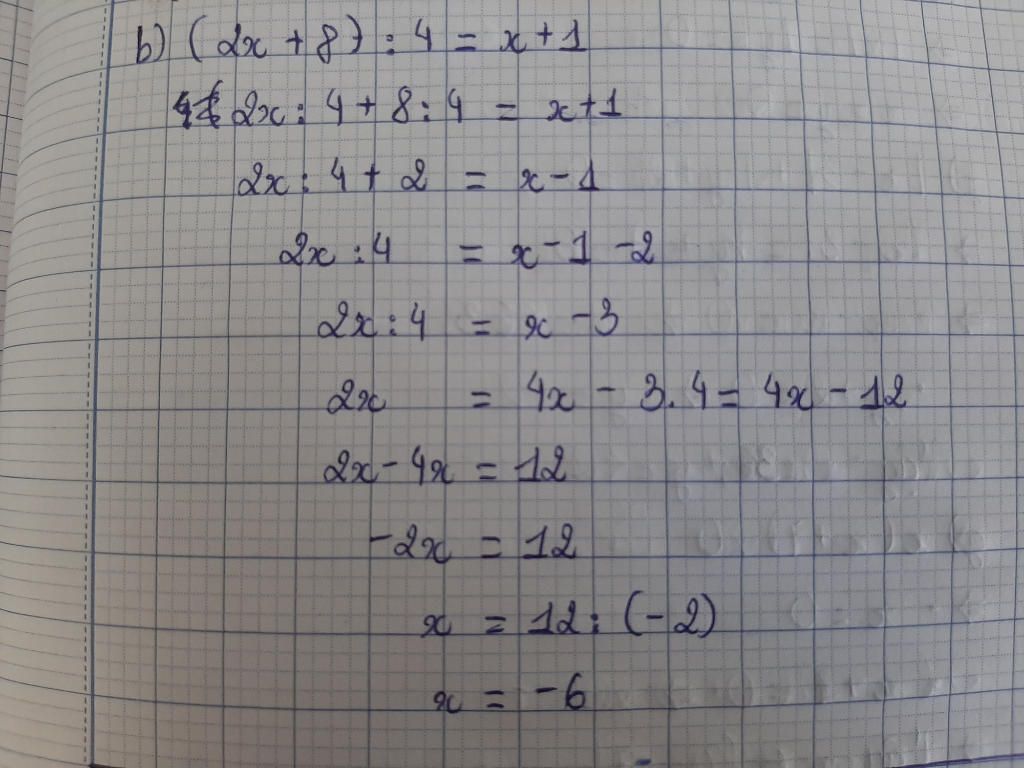 b) (2x + 8) : 4 = x + 1
2x : 4 + 8 : 4 = x + 1
2x : 4 + 2 = x - 1
2x : 4 = x - 1 - 2
2x : 4 = x - 3
2x = 4x - 3. 4 = 4x - 12
2x - 4x = 12
-2x = 12
x = 12 : (-2)
x = -6